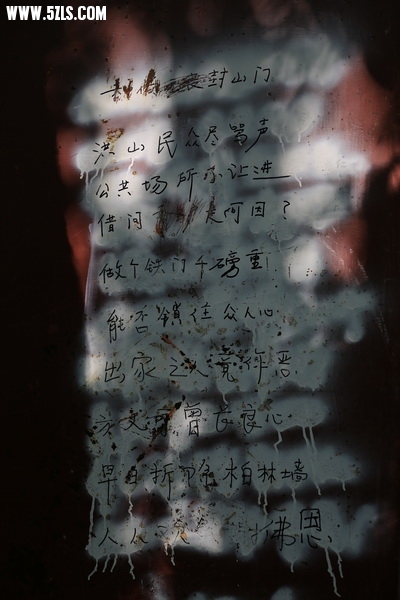 WWW.5ZLS.COM
封山门
洪山民众尽骂声
公共场所不让进
借问是何因？
做个铁门千磅重
能否锁住众人心
出家之人竟作恶
良心
早日拆除柏林墙
人人佛恩